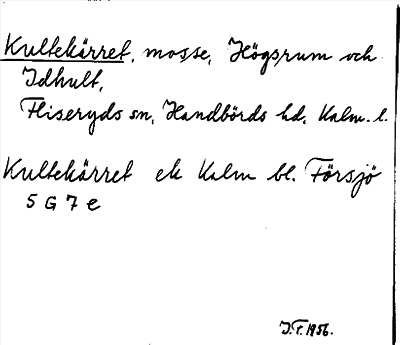 Kultekärret, mosse, Högsrum och
Idhult,
Fliseryds sn, Handbörds hd, Kalm. l.
Kultekärret ek Kalm bl. Försjö
5 G 7 e
J.T. 1956.